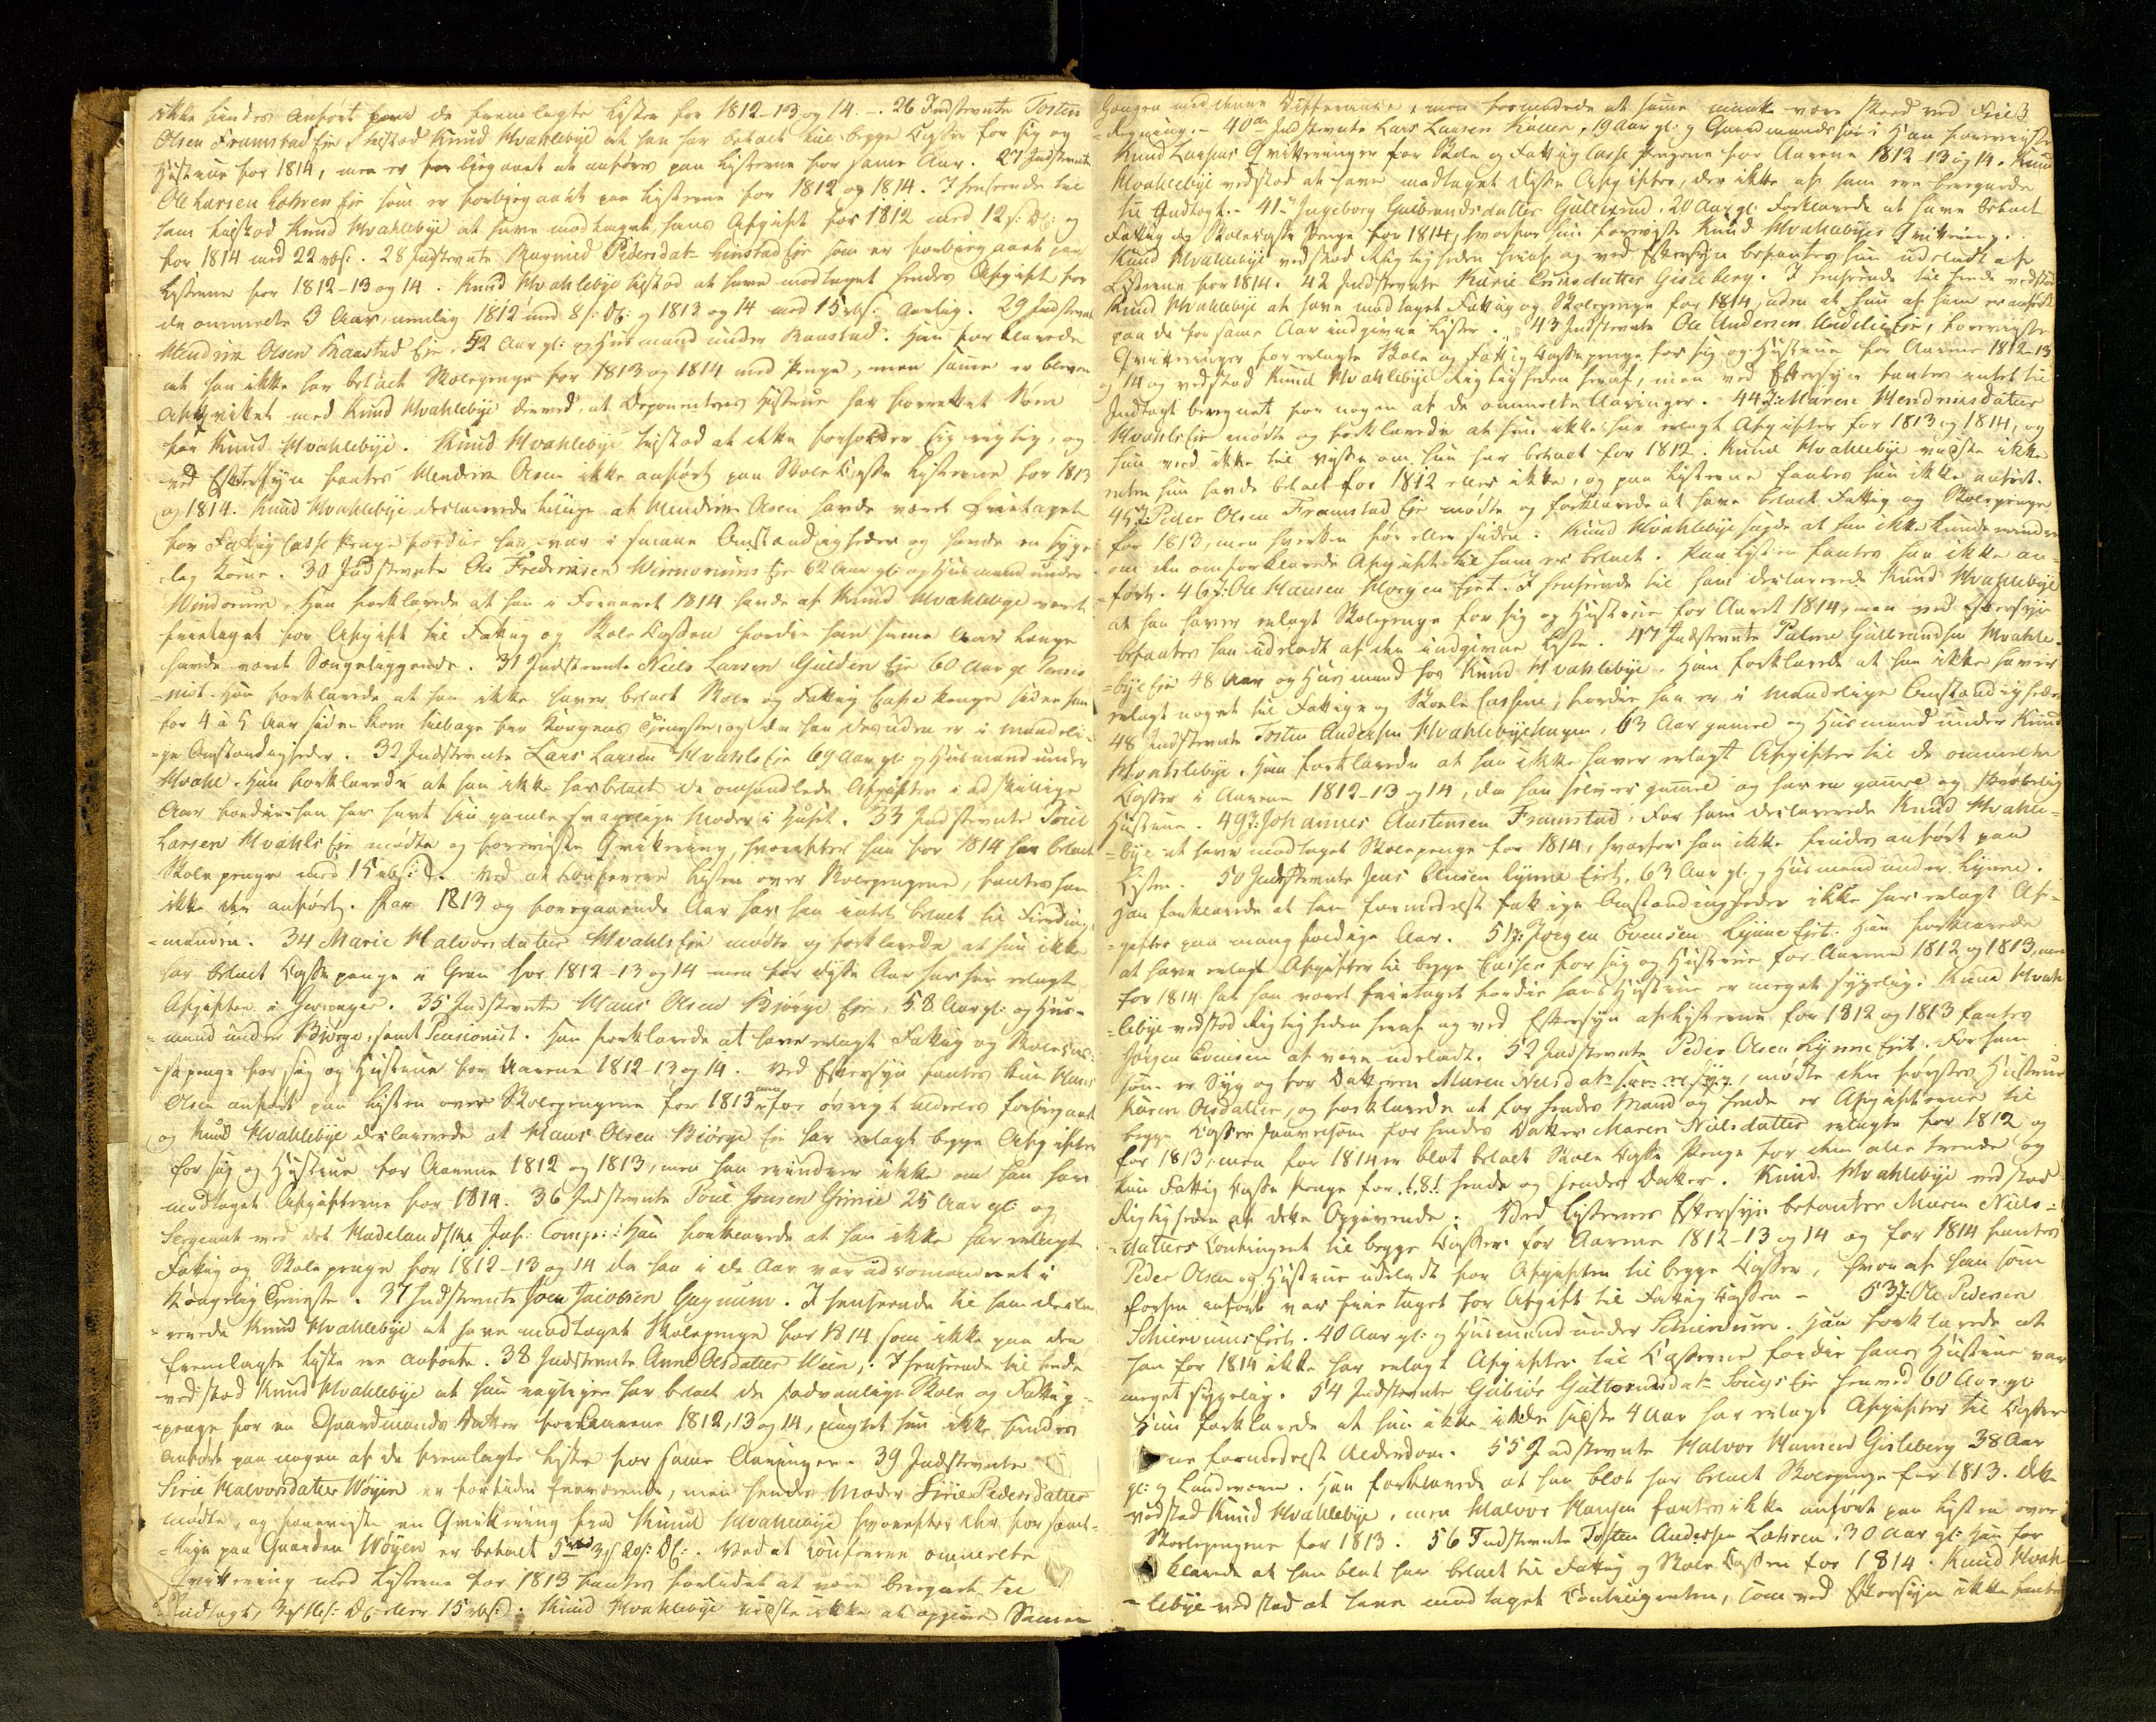 ikke findes anført paa de fremlagte Lister for 1812-13 og 14. - 26 Indstevnte Tosten
Olsen Framstad Eje, tilstod Knud Hvahlebye at han har betalt til begge Casser for sig og
Hustrue for 1814, men er forbigaaet at anføres paa Listerne for samme Aar. 27 Indstevnte
Ole Larsen Løhren Eje som er forbiegaaet paa Listerne for 1812 og 1814. I henseende til
ham tilstod Knud Hvahlebye at have modtaget hans Afgift for 1812 med 12 s: D: og
for 1814 med 22 rbs:. 28 Indstevnte Magnild Pedersdatr Ginstad Eje som er forbiegaaet paa
Listerne for 1812-13 og 14. Knud Hvahlebye tilstod at have modtaget hendes Afgift for
de ommelte 3 Aar, nemlig 1812 med 8 s: D: og 1813 og 14 med 15 rbs: aarlig. 29 Indstevnte
Hendrik Olsen Raastad Eje, 52 Aar gl: og Huusmand under Raastad. Han forklarede
at han ikke har betalt Skolepenge for 1813 og 1814 med Penge, men samme er bleven
afqvittet med Knud Hvahlebye derved, at Deponentens Hustrue har forrettet
for Knud Hvahlebye. Knud Hvahlebye tilstod at dette forholder sig rigtig, og
ved Eftersyn fantes Hendrik Olsen ikke anført paa Skole Casse Listerne for 1813
og 1814. Knud Hvahlebye declarerede tillige at Hendrik Olsen havde været frietaget
for Fattig Casse Penge fordie han var i smaae Omstændigheder og havde en syge-
lig Kone. 30 Indstevnte Ole Fredriksen Windorum Eje 62 Aar gl: og Huusmand under
Windorum, Han forklarede at han i Foraaret 1814 havde af Knud Hvahlebye været
frietaget for Afgift til Fattig og Skole Cassen fordie han samme Aar længe
havde været Sengeliggende. 31 Indstevnte Niels Larsen Gulden Eje 60 Aar gl: Pensio
-nist. Han forklarede at han ikke haver betalt Skole og Fattig Casse Penge siden han
for 4 à 5 Aar siden kom tilbage fra Kongens Tjeneste, og da han desuden er i maadeli-
-ge Omstændigheder. 32 Indstevnte Lars Larsen Hvahls Eje 69 Aar gl: og Huusmand under
Hvahl. Han forklarede at han ikke har betalt de omhandlede Afgifter i adskillige
Aar fordie han har havt sin gamle svagelige Moder i Huset. 33 Indstevnte Poul
Larsen Hvahls Eje mødte og foreviste Qvittering, hvorefter han for 1814 har betalt
Skolepenge med 15 rbs: D. Ved at conferere Listen over Skolepengene, fantes han
ikke der anført. For 1813 og foregaaende Aar har han intet betalt til Findings-
-manden. 34 Marie Halvorsdatter Hvahls Eje mødte og forklarede at hun ikke
har betalt Cassepenge i Gran for 1812-13 og 14 men for disse Aar har hun erlagt
Afgiften i Jevnager. 35 Indstevnte Hans Olsen Bjørge Eje, 58 Aar gl: og Huus-
mand under Bjørge, samt Pensionist. Han forklarede at have erlagt Fattig og Skole Cas-
-sepenge for sig og Hustrue for Aarene 1812-13 og 14. Ved Eftersyn fantes kun Hans
Olsen anført paa Listen over Skolepengene for 1813 men for øvrigt aldeles forbigaaet
og Knud Hvahlebye declarerede at Hans Olsen Biørge Eje har erlagt begge Afgifter
for sig og Hustrue for Aarene 1812 og 1813, men han erindrer ikke om han har
modtaget Afgifterne for 1814. 36 Indstevnte Poul Jonsen Grinie 25 Aar gl: og
Sergeant ved det Hadelandske Inf: Comp: Han forklarede at han ikke har erlagt
Fattig og Skolepenge for 1812-13 og 14 da han i de Aar var udcomanderet i
Kongelig Tjeneste. 37 Indstevnte Joen Jacobsen Gagnum. I henseende til ham decla
-rerede Knud Hvahlebye at have modtaget Skolepenge for 1814 som ikke paa den
fremlagte Liste er anførte. 38 Indstevnte Anne Olsdatter Wien. I henseende til hende
vedstod Knud Hvahlebye at hun rigtigen har betalt de sædvanlige Skole og Fattig-
-penge for en Gaardmands Datter for Aarene 1812, 13 og 14, uagtet hun ikke findes
anført paa nogen af de fremlagte Lister for samme Aaringer. 39 Indstevnte
Sirie Halvorsdatter Wøyen er fortiden fraværende, men hendes Moder Sirie Pedersdatter
mødte, og foreviste en Qvittering fra Knud Hvahlebye hvorefter der for samt-
-lige paa Gaarden Wøyen er betalt 5 rbd 3 20 s: D:. Ved at conferere ommelte
Qvittering med Listerne for 1813 fantes forlidet at være beregnet til
Indtægt, 3 16 s: D: eller 15 rbs: D. Knud Hvahlebye vidste ikke at opgive Sammen
hængen med denne Differance, men formodede at samme maatte være skeed ved Feil
-Regning. - 40de Indstevnte Lars Larsen, 19 Aar gl: og Gaardmands søn. Han foreviste
Knud Qvitteringer for Skole og Fattig Casse Pengene for Aarene 1812-13 og 14. Knud
Hvahlebye vedstod at have modtaget disse Afgifter, der ikke af ham ere beregnede
til Indtægt. - 41 Ingeborg Gulbrandsdatter Gullerud, 20 Aar gl. Forklarede at have betalt
Fattig og Skolecasse Penge for 1814, hvorfor hun foreviste Knud Hvahlebyes Qvittering.
Knud Hvahlebye vedstod Rigtigheden heraf og ved Eftersyn befantes hun udeladt af
Listerne for 1814. 42 Indstevnte Karie Eriksdatter Gisleberg. I henseende til hende vedstod
Knud Hvahlebye at have modtaget Fattig og Skolepenge for 1814, uden at hun af ham er anført
paa de for samme Aar indgivne Lister. 43 Indstevnte Ole Andersen Undelie Eje, foreviste
Qvitteringer for erlagte Skole og Fattig Cassepenge for sig og Hustrue for Aarene 1812-13
og 14 og vedstod Knud Hvahlebye Rigtigheden heraf, men ved Eftersyn fantes intet til
Indtægt beregnet for nogen af de ommelte Aaringer. 44 J: Maren Hendriksdatter
Hvahls Eje mødte og forklarede at hun ikke har erlagt Afgifter for 1813 og 1814, og
hun veed ikke til visse om hun har betalt for 1812. Knud Hvahlebye vidste ikke
enten hun havde betalt for 1812 eller ikke, og paa Listerne fantes hun ikke anført.
45 J: Peder Olsen Framstad Eje mødte og forklarede at have betalt Fattig og Skolepenge
for 1813, men hverken før eller siden. Knud Hvahlebye sagde at han ikke kunde erindre
om den omforklarede Afgift til ham er betalt. Paa Listen fantes han ikke an-
-ført. 46 J: Ole Hansen Horgen Eiet. I henseende til ham declarerede Knud Hvahlebye
at han haver erlagt Skolepenge for sig og Hustrue for Aaret 1814, men ved Eftersyn
befantes han udeladt af den indgivne Liste. 47 Indstevnte Palme Gulbrandsen Hvahle-
-bye Eje 48 Aar og Huusmand hos Knud Hvahlebye. Han forklarede at han ikke haver
erlagt noget til Fattige og Skole Casserne, fordie han er i maadelige Omstændigheder
48 Indstevnte Tosten Andersen Hvahlebyehagen, 63 Aar gamel og Huusmand under Knud
Hvahlebye. Han forklarede at han ikke haver erlagt Afgifter til de ommelte
Casser i Aarene 1812-13 og 14, da han selv er gamel og har en gamel og skrøbelig
Hustrue. 49 J: Johannes Austensen Framstad. For ham declarerede Knud Hvahle-
-bye at have modtaget Skolepenge for 1814, hvorfor han ikke findes anført paa
Listen. 50 Indstevnte Jens Olausen Lynne Eiet, 63 Aar gl: og Huusmand under Lynne.
Han forklarede at han formedelst fattige Omstændigheder ikke har erlagt Af-
-gifter paa mangfoldige Aar. 51 J: Jørgen Evensen Lynne Eiet. Han forklarede
at have erlagt Afgifter til begge Casser for sig og Hustrue for Aarene 1812 og 1813, men
for 1814 har han været frietaget fordie hans Hustrue er meget sygelig. Knud Hvah
-lebye vedstod Rigtigheden heraf og ved Eftersyn af Listerne for 1812 og 1813 fantes
Jørgen Evensen at være udeladt. 52 Indstevnte Peder Olsen Lynne Eiet. For ham
som er Syg og for Datteren Maren Nielsdatr som er syg, mødte den førstes Hustrue
Karen Olsdatter, og forklarede at for hendes Mand og hende er Afgifterne til
begge Casser saavelsom for hendes Datter Maren Nielsdatter erlagte for 1812 og
for 1813, men for 1814 er blot betalt Skole Casse Penge for dem alle trende og
kun Fattig Casse Penge for hende og hendes Datter. Knud Hvahlebye vedstod
Rigtigheden af dette Opgivende. Ved Listernes Eftersyn befantes Maren Niels-
-datters Contingent til begge Casser for Aarene 1812-13 og 14 og for 1814 fantes
Peder Olsen og Hustrue udeladt for Afgiften til begge Casser, hvoraf han som
forhen anført var frietaget for Afgift til Fattig Cassen - 53 J: Ole Pedersen
Schiervums Eiet. 40 Aar gl: og Huusmand under Schiervum. Han forklarede at
han for 1814 ikke har erlagt Afgifter til Casserne fordie hans Hustrue var
meget sygelig. 54 Indstevnte Gubiør Guttormsdatr Sougs Eje henved 60 Aar gl:
Hun forklarede at hun ikke i de sidste 4 Aar har erlagt Afgifter til Casser
ne formedelst Alderdom. 55 Indstevnte Halvor Hansen Gisleberg 38 Aar
gl: og Landeværn. Han forklarede at han blot har betalt Skolepenge for 1813. Dette
vedstod Knud Hvahlebye, men Halvor Hansen fantes ikke anført paa Listen over
Skolepengene for 1813. 56 Indstevnte Tosten Andersen Løhren. 30 Aar gl: Han for
klarede at han blot har betalt til Fattig og Skole Cassen for 1814. Knud Hvah
-lebye vedstod at have modtaget Contingenten, som ved Eftersyn ikke fantes